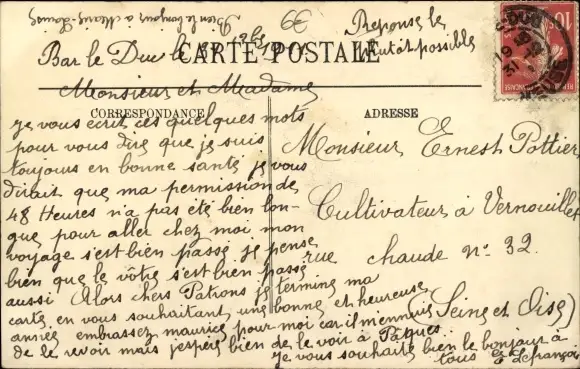 Bien le bonjour à
Réponse le
plutôt possible
Bar le Duc le 31
CARTE POSTALE
Monsieur et Madame
CORRESPONDANCE
Je vous écrit ces quelques mots
pour vous dire que je suis
toujours en bonne santé je vous
dirait que ma permission de
48 Heures n'a pas été bien lon-
gue pour aller chez moi mon
voyage s'est bien passé je pense
bien que le vôtre s'est bien passé
aussi Alors chers Patrons je termine ma
carte en vous souhaitant une bonne et heureuse
année embrassez maurice pour moi car il m'ennuie
de le revoir mais j'espère bien de le voir à Pâques
je vous souhaite bien le bonjour à
tous Lefrançois
ADRESSE
Monsieur Ernest Pottier
Cultivateur à Vernouillet
rue chaude n° 32.
(Seine et Oise)
10